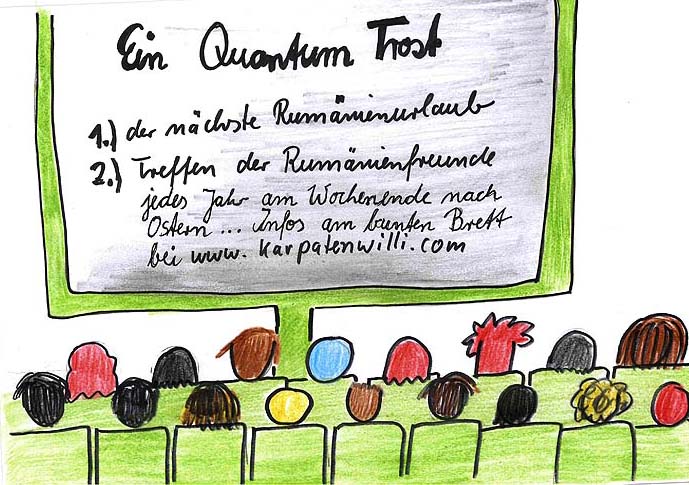 Ein Quantum Trost
1.) der nächste Rumänienurlaub
2.) Treffen der Rumänienfreunde
jedes Jahr am Wochenende nach
Ostern... Infos am bunten Brett
bei www.karpatenwilli.com